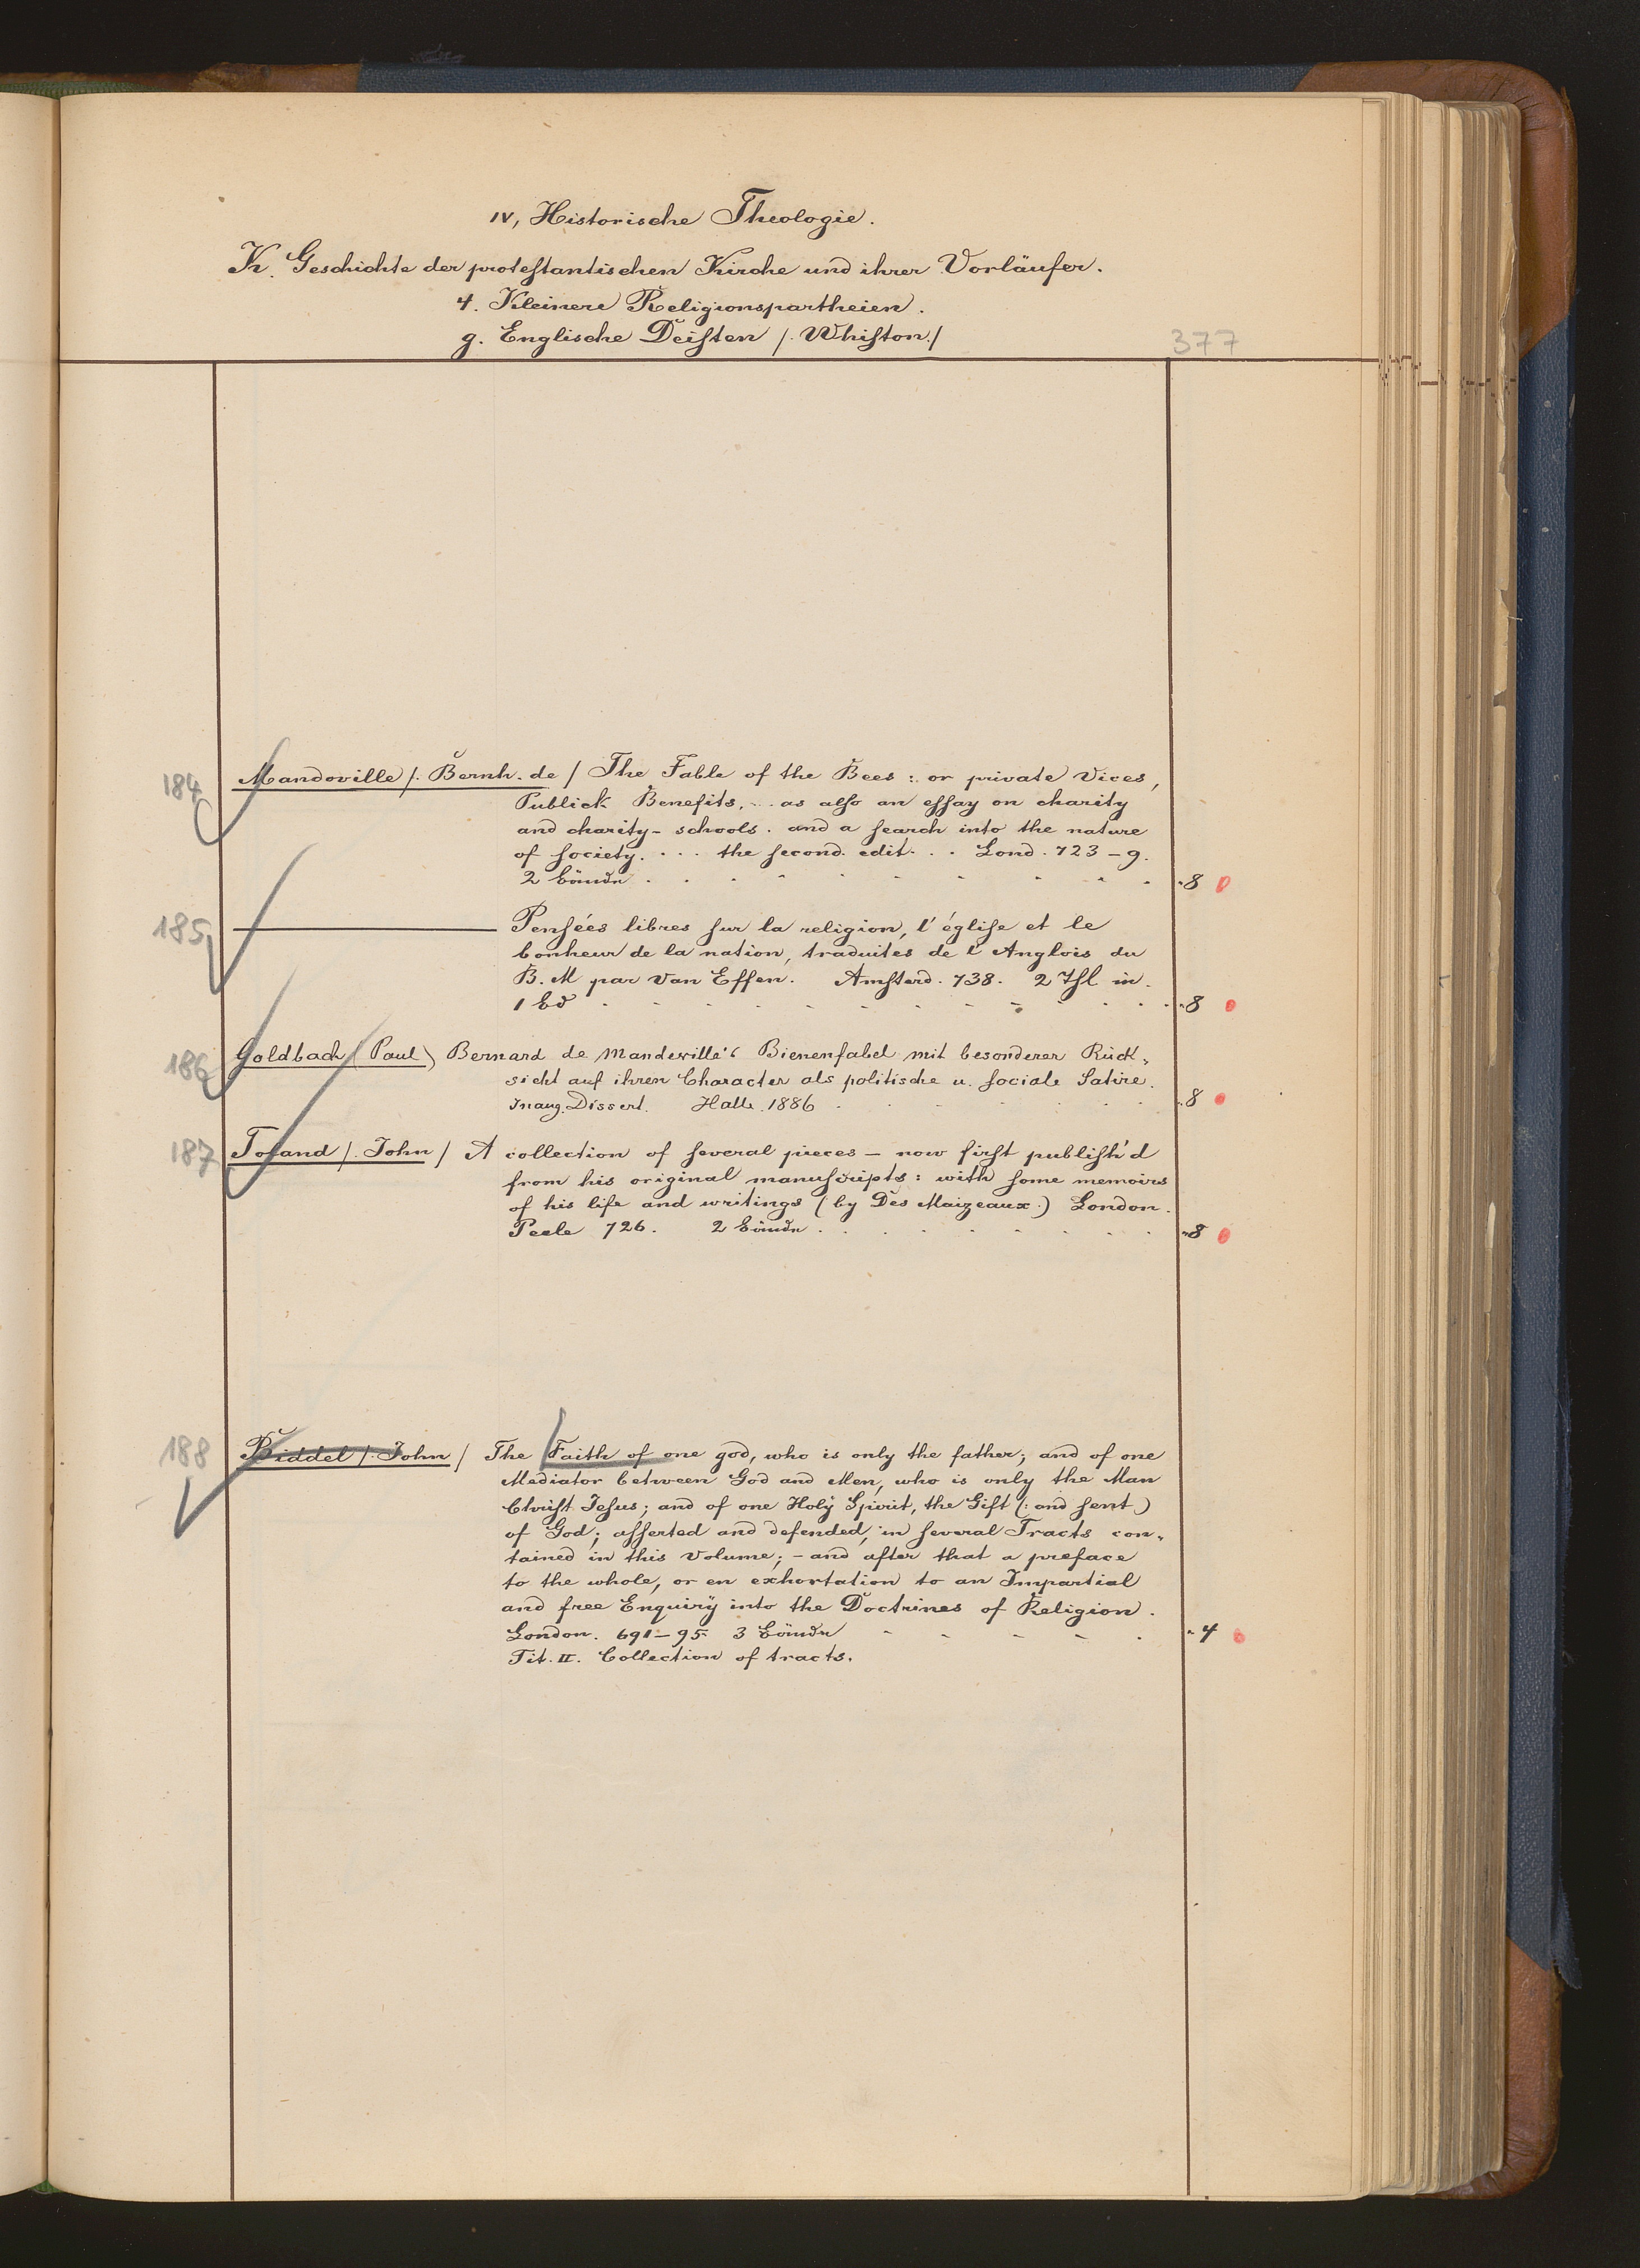 IV, Historische Theologie.
K. Geschichte der protestantischen Kirche und ihrer Vorläufer.
4. Kleinere Religionspartheien.
g. Englische Deisten /. Whiston./
377
184 Mandeville /. Bernh. de / The Fable of the Bees : or private Vices,
Publick Benefits, ... as also an essay on charity
and charity-schools. and a search into the nature
of society. . . . the second. edit. . . Lond. 723-9.
2 Bände . . . . . . . . . . "8
185 ——— Pensées libres sur la religion, l'église et le
bonheur de la nation, traduites de l'Anglois du
B. M par Van Effen. Amsterd. 738. 2 Thl in.
1 Bd . . . . . . . . . . "8
186 Goldbach (Paul) Bernard de Mandeville's Bienenfabel mit besonderer Rück-
sicht auf ihren Character als politische u. sociale Satire.
Inaug. Dissert. Halle. 1886 . . . . . . "8
187 Toland /. John / A collection of several pieces — now first publish'd
from his original manuscripts : with some memoirs
of his life and writings (by Des Maizeaux.) London.
Peele 726. 2 Bände . . . . . . . "8
188 Biddel /. John / The Faith of one god, who is only the father; and of one
Mediator between God and Men, who is only the Man
Christ Jesus; and of one Holy Spirit, the Gift (: and sent)
of God; asserted and defended, in several Tracts con-
tained in this volume; - and after that a preface
to the whole, or en exhortation to an Impartial
and free Enquiry into the Doctrines of Religion.
London. 691-95 3 Bände . . . . . "4
Tit. II. Collection of tracts.